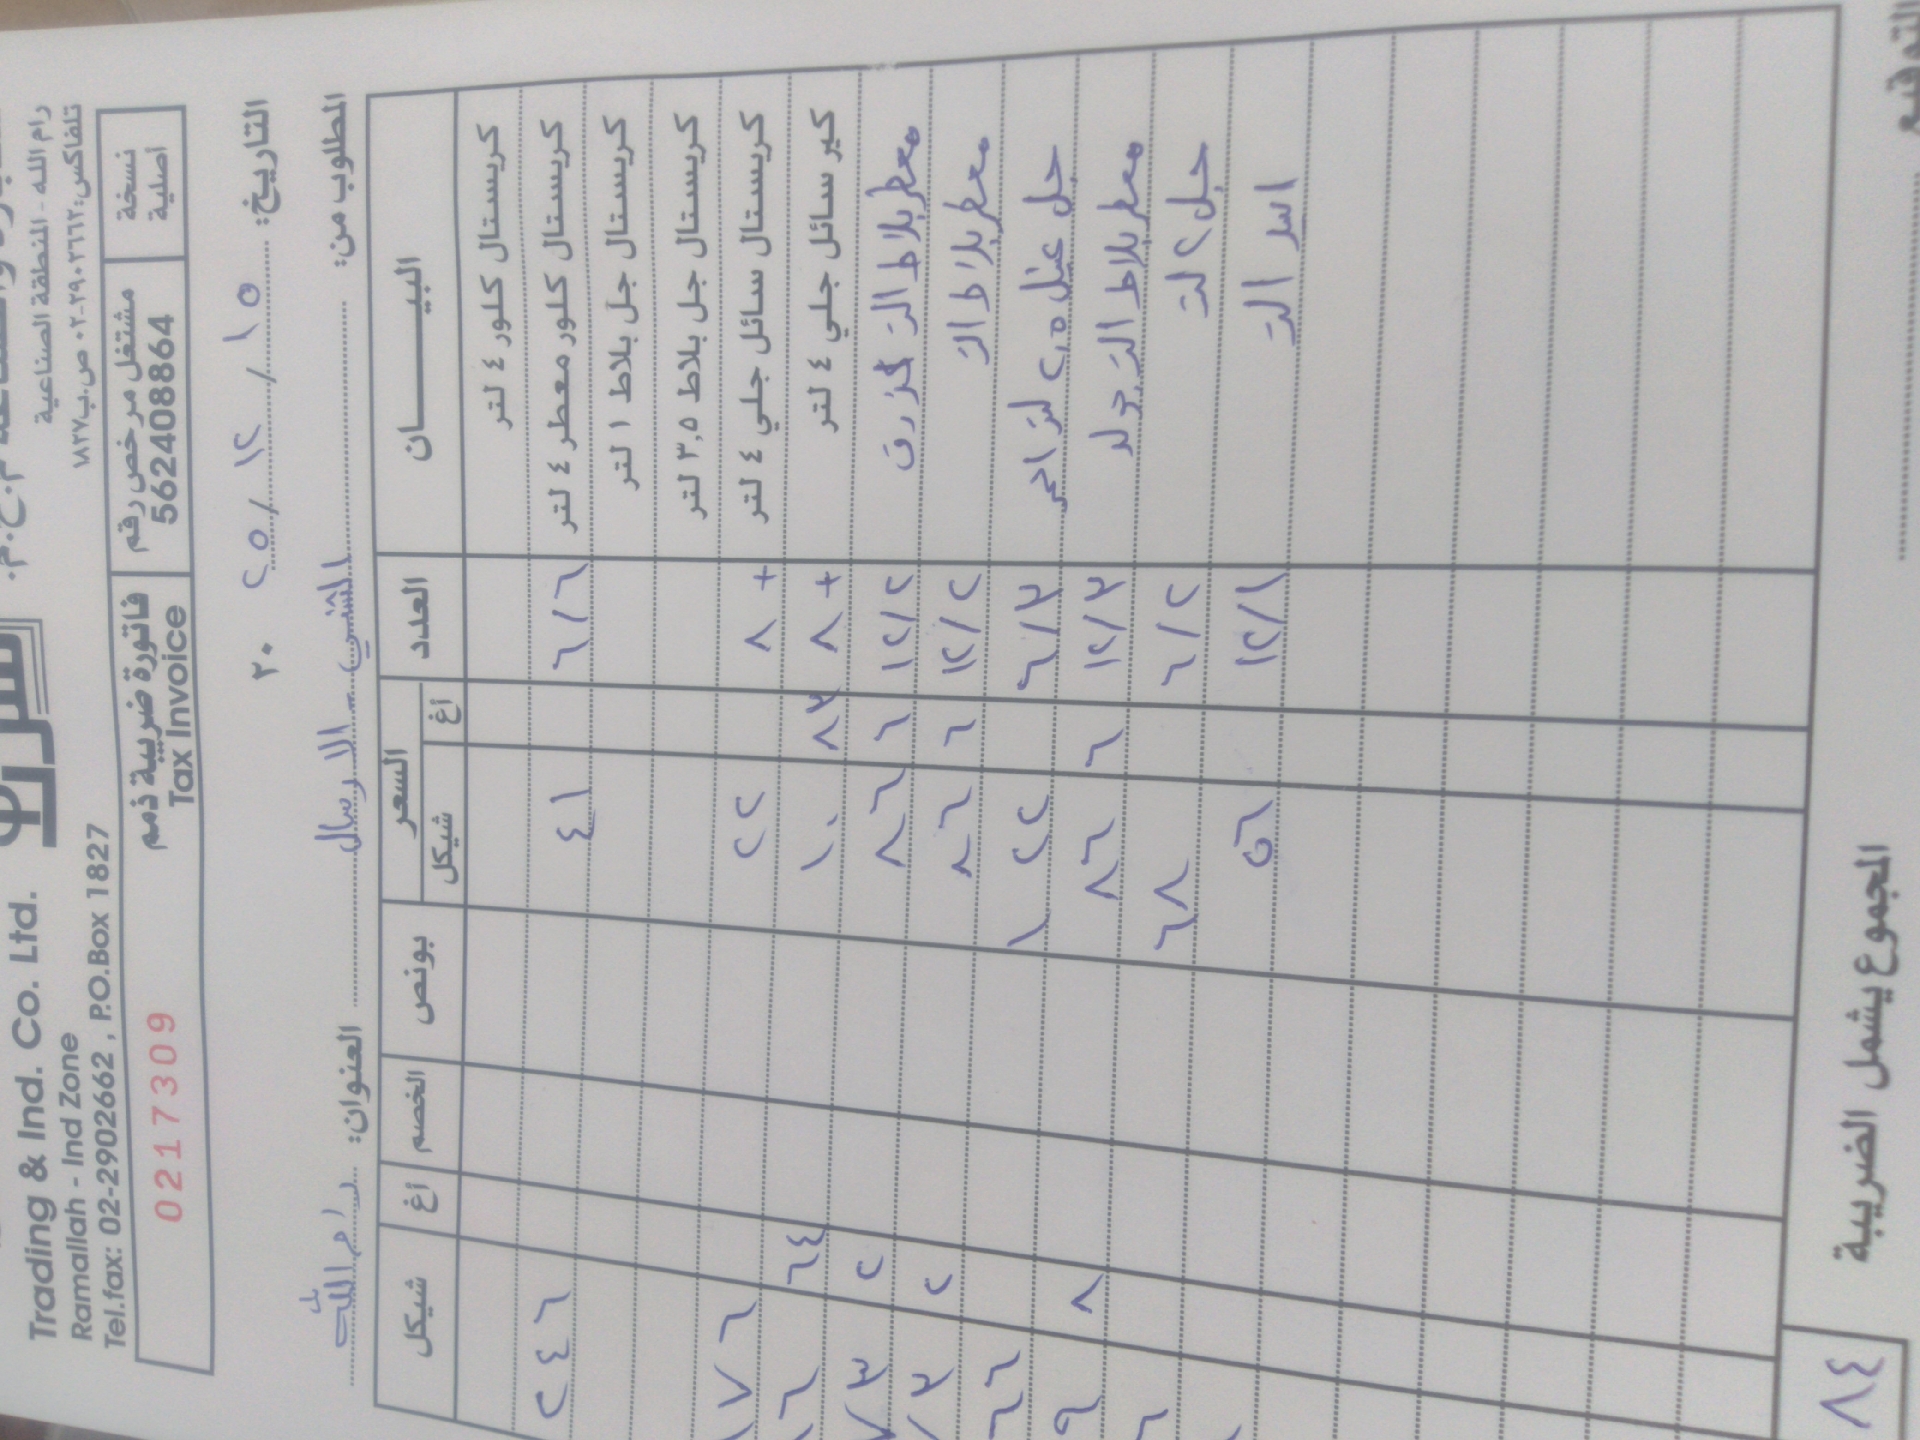 Trading & Ind. Co. Ltd.
Ramallah - Ind Zone
Tel.fax: 02-2902662 , P.O.Box 1827
رام الله - المنطقة الصناعية
تلفاكس: ٢٩٠٢٦٦٢-٠٢ ص.ب ١٨٢٧
0217309
فاتورة ضريبية ذمم
Tax Invoice
مشتغل مرخص رقم
562408864
نسخة
اصلية
التاريخ: ١٥ / ١٢ / ٢٥ ٢٠
المطلوب من: الارسال
العنوان: رام الله
البيـــــــان العدد السعر بونص الخصم أغ شيكل
شيكل أغ
كريستال كلور ٤ لتر
كريستال كلور معطر ٤ لتر ٦/٦ ٤١ ٢٤٦
كريستال جل بلاط ١ لتر
كريستال جل بلاط ٣,٥ لتر
كريستال سائل جلي ٤ لتر ٨+ ٢٢ ١٧٦
كير سائل جلي ٤ لتر ٨+ ١٠ ٨٣ ٦٤
معطر بلاط التر ١٢/٢ ٨٦ ٦ ٢
معطر بلاط التر ١٢/٢ ٨٦ ٦ ٢
جل ٢,٥ لتر احمر ٦/٣ ١٢٢ ٦٦
معطر بلاط التر ١٢/٣ ٨٦ ٦ ٨
جل ٢ لتر ٦/٢ ٦٨
التر ١٢/١ ٥٦
المجموع يشمل الضريبة ٨٤
التوقيع